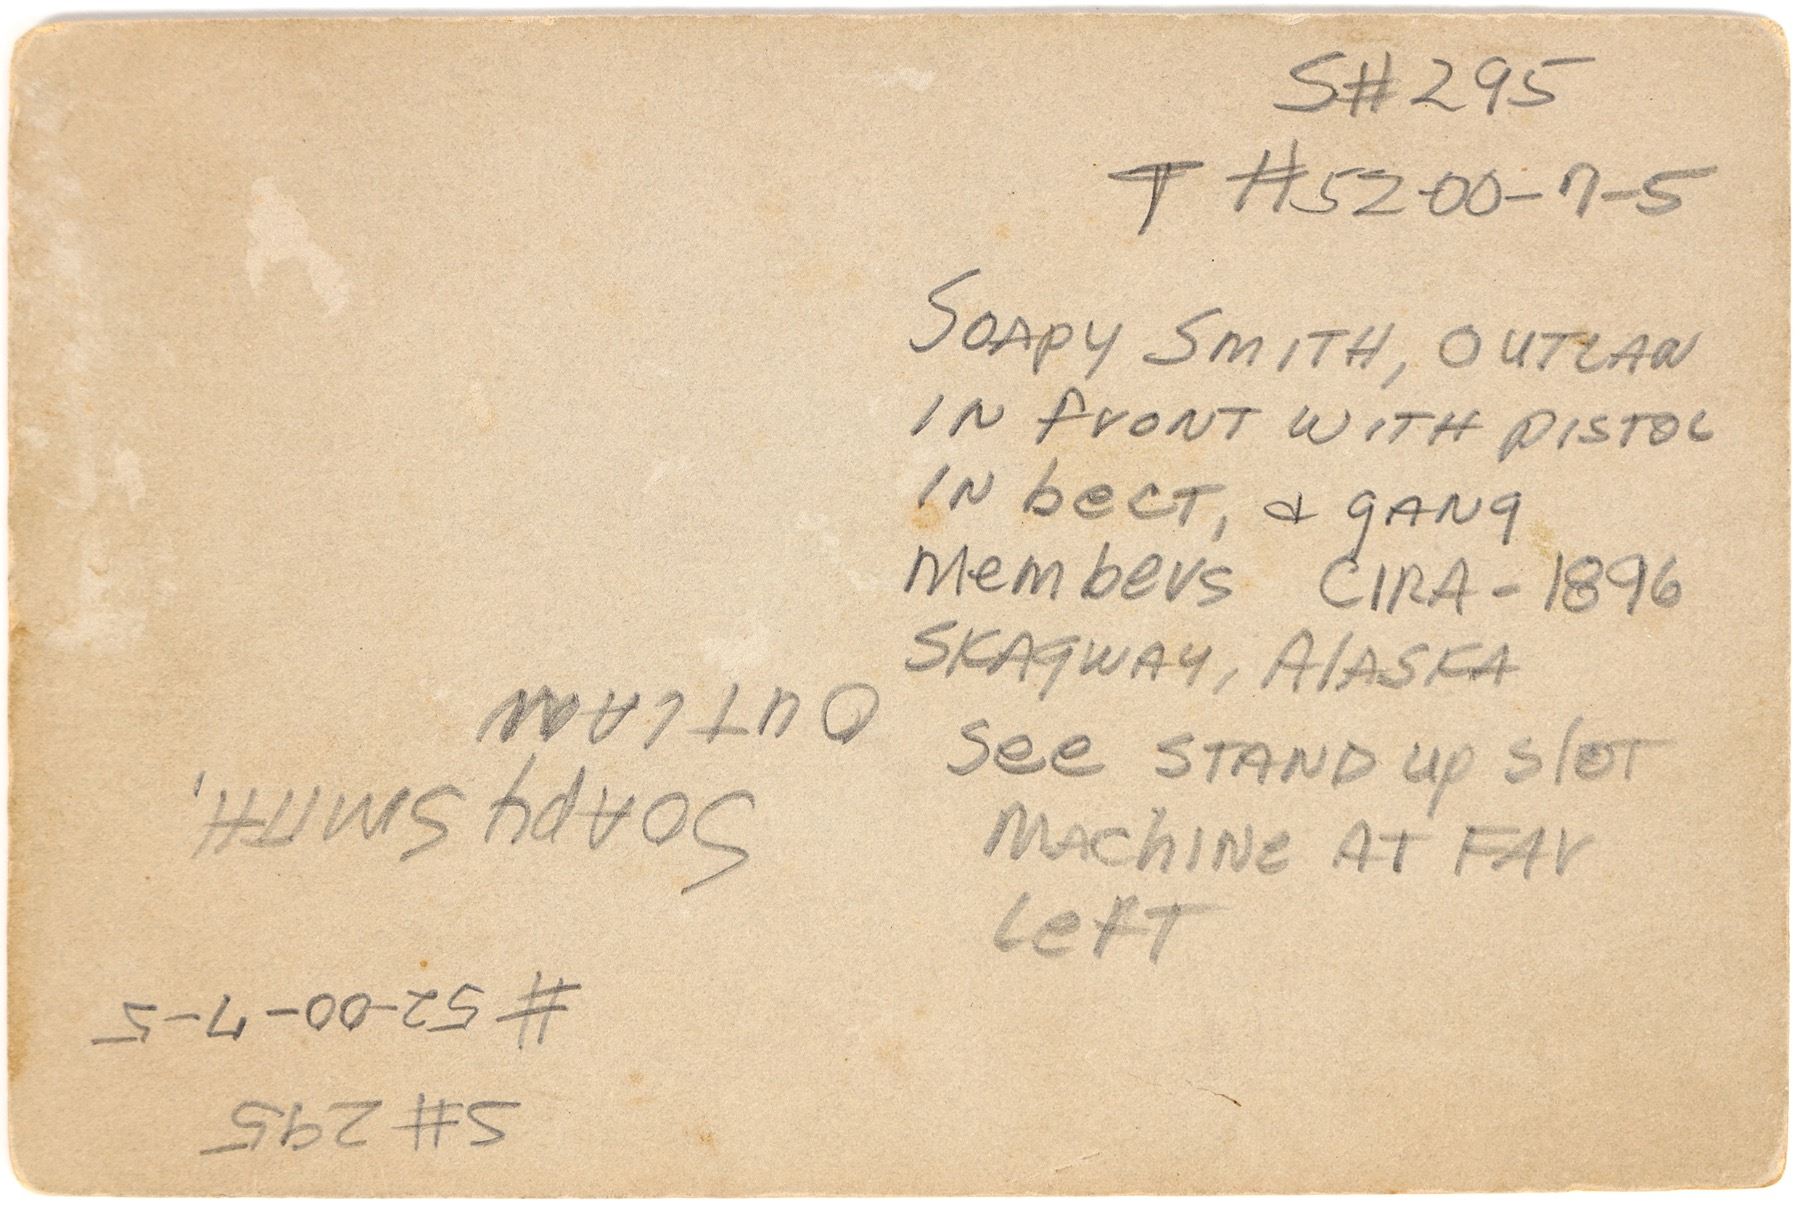 S# 295
T #5200-7-5
SOAPY SMITH, OUTLAW
IN FRONT WITH PISTOL
IN beLT, & gANg
MemberS CIRA-1896
SKAgWAY, AlASKA
See STAND up slOT
MAchINe AT FAr
LefT
S# 295
# 52-00-7-5
SOAPY SMITH,
OUTLAW